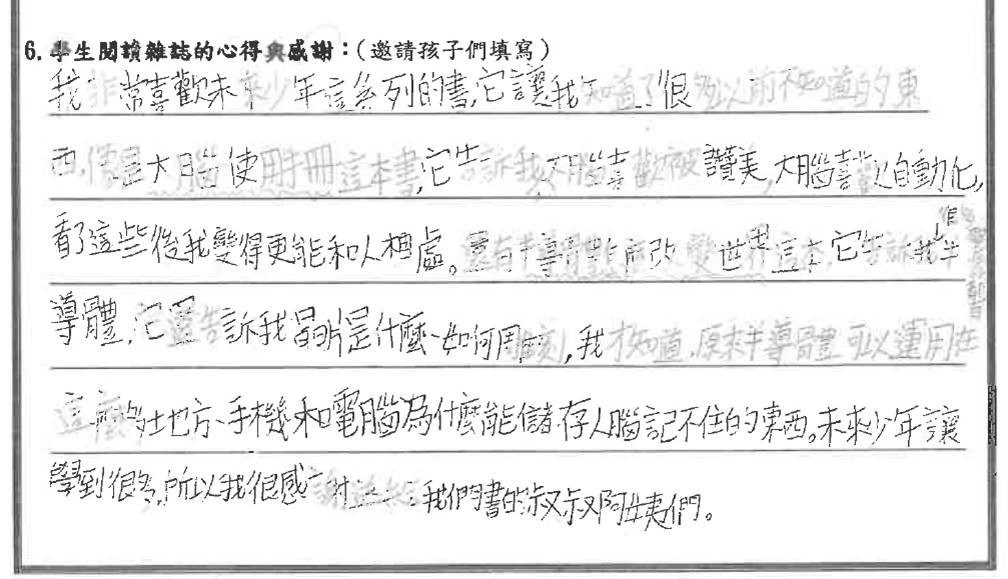 6. 學生閱讀雜誌的心得與感謝：(邀請孩子們填寫)
我非常喜歡未來少年這系列的書,它讓我知道了很多以前不知道的東
西,像是大腦使用手冊這本書,它告訴我大腦喜歡被讚美,大腦喜歡自動化,
看了這些後我變得更能和人相處。還有半導體改變世界這本,它告訴我半
導體,它還告訴我晶片是什麼、如何用,我才知道,原來半導體可以運用在
這麼多地方、手機和電腦為什麼能儲存人腦記不住的東西。未來少年讓
學到很多,所以我很感謝我們書的叔叔阿姨們。